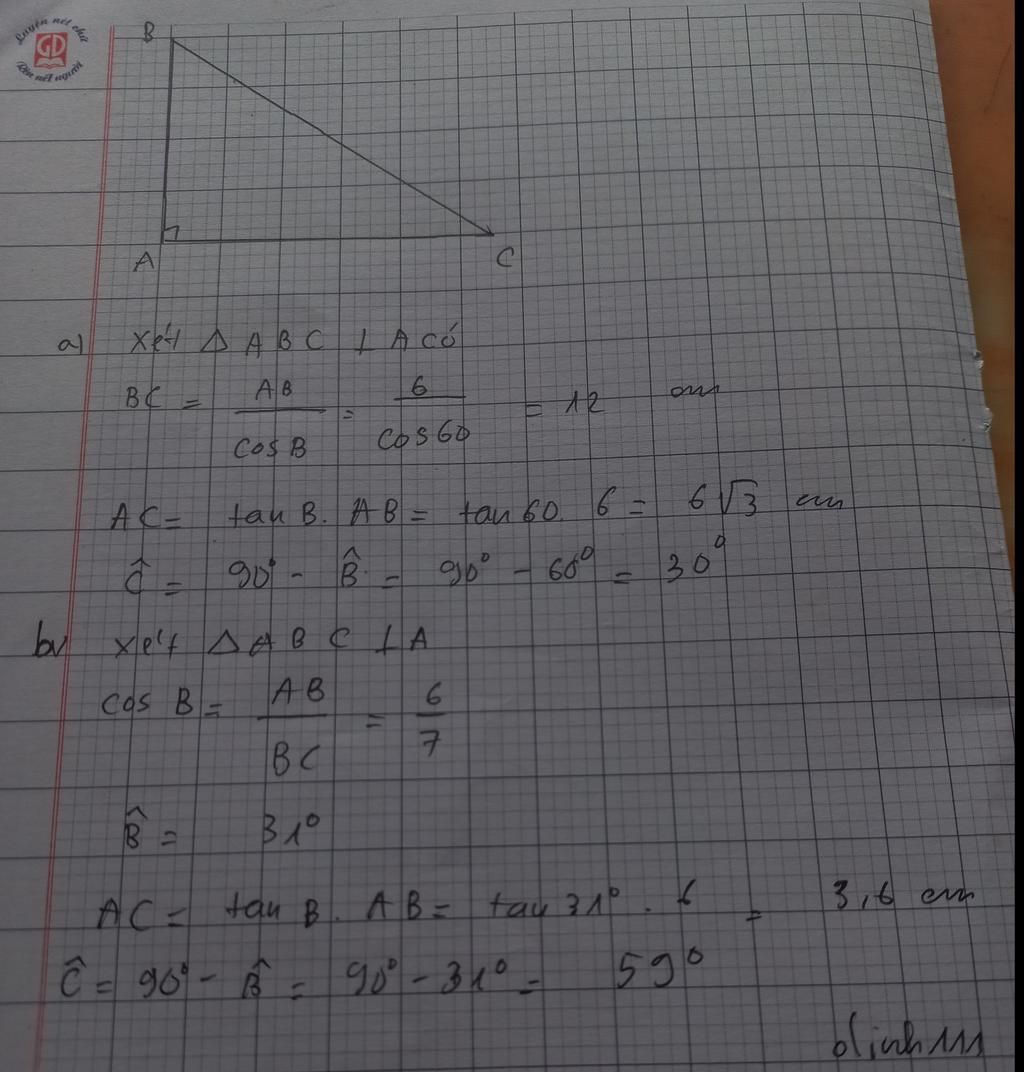 Luyện nét chữ
GD
Rèn nết người
B
A
C
a) Xét Δ ABC ⊥ A có
BC = AB / cos B = 6 / cos 60 = 12 cm
AC = tan B. AB = tan 60. 6 = 6√3 cm
Ĉ = 90° - B̂ = 90° - 60° = 30°
b) Xét Δ ABC ⊥ A
cos B = AB / BC = 6 / 7
B̂ = 31°
AC = tan B. AB = tan 31° . 6 = 3,6 cm
Ĉ = 90° - B̂ = 90° - 31° = 59°